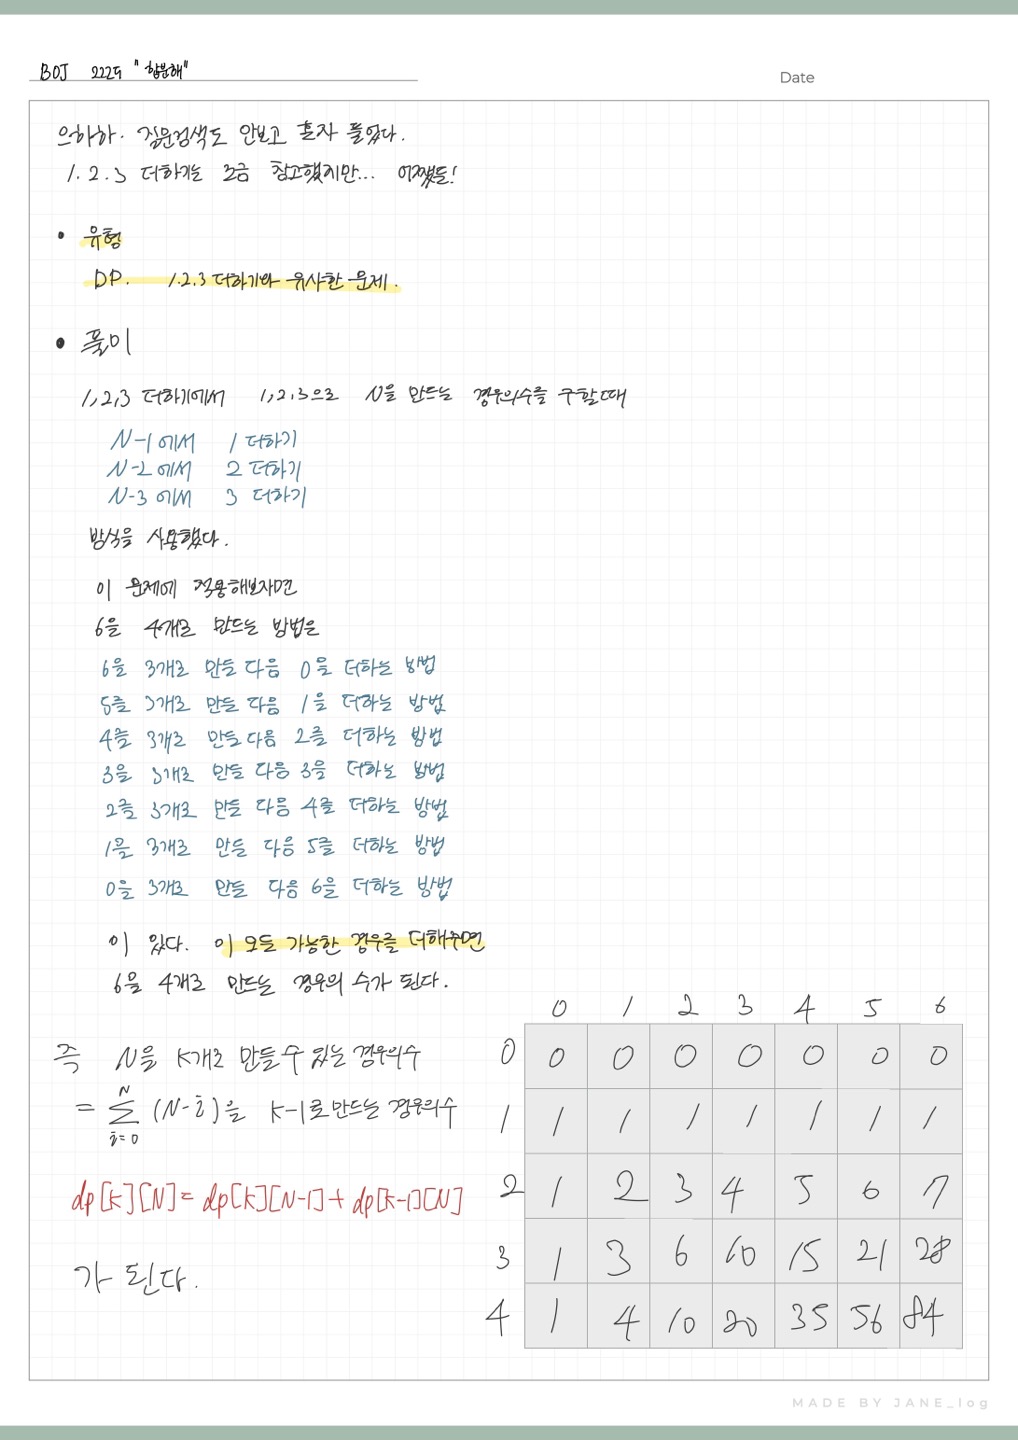 BOJ 2225 "합분해"
Date
으하하. 질문검색도 안보고 혼자 풀었다.
1.2.3 더하기는 조금 참고했지만... 어쨌든!
• 유형
DP. 1.2.3 더하기와 유사한 문제.
• 풀이
1,2,3 더하기에서 1,2,3으로 N을 만드는 경우의수를 구할때
N-1에서 1 더하기
N-2에서 2 더하기
N-3에서 3 더하기
방식을 사용했다.
이 문제에 적용해보자면
6을 4개로 만드는 방법은
6을 3개로 만든 다음 0을 더하는 방법
5를 3개로 만든 다음 1을 더하는 방법
4를 3개로 만든 다음 2를 더하는 방법
3을 3개로 만든 다음 3을 더하는 방법
2를 3개로 만든 다음 4를 더하는 방법
1을 3개로 만든 다음 5를 더하는 방법
0을 3개로 만든 다음 6을 더하는 방법
이 있다. 이 모든 가능한 경우를 더해주면
6을 4개로 만드는 경우의 수가 된다.
즉 N을 K개로 만들 수 있는 경우의수
= N∑i=0 (N-i)을 K-1로 만드는 경우의수
dp[K][N] = dp[K][N-1] + dp[K-1][N]
가 된다.
0 1 2 3 4 5 6
0 0 0 0 0 0 0 0
1 1 1 1 1 1 1 1
2 1 2 3 4 5 6 7
3 1 3 6 10 15 21 28
4 1 4 10 20 35 56 84
MADE BY JANE_log